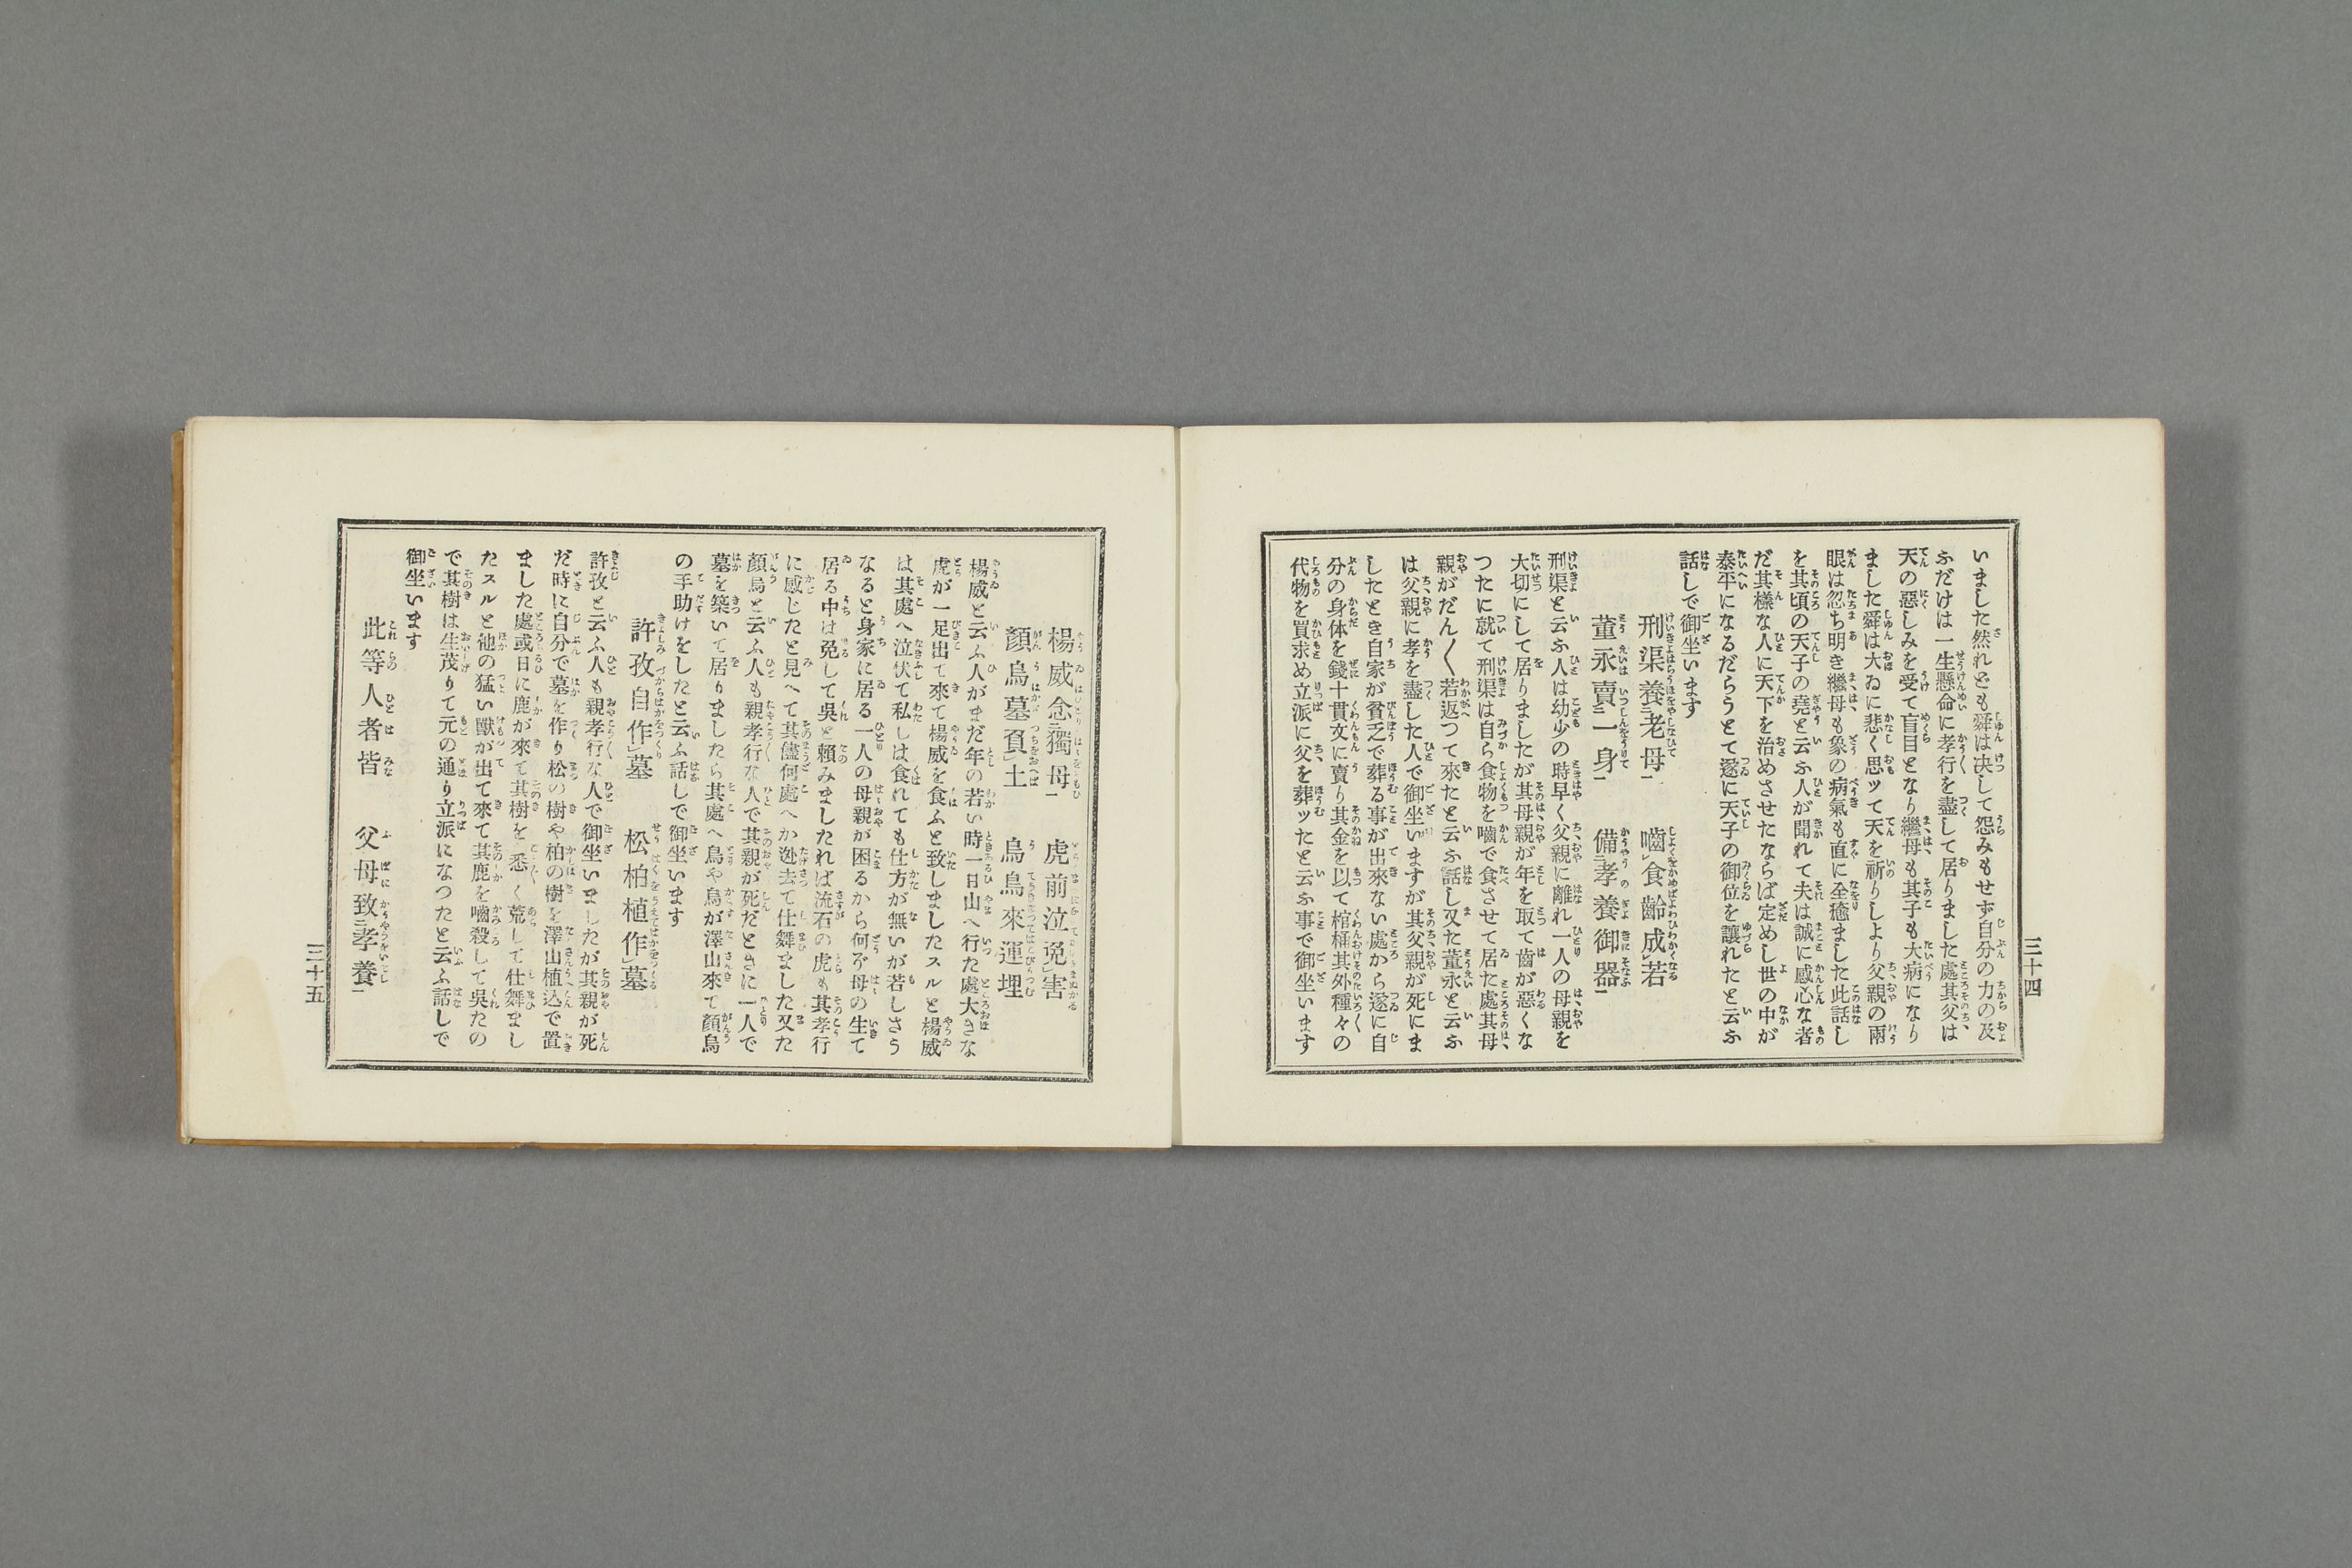 三十四
いました然れども舜は决して怨みもせず自分の力の及
ふだけは一生懸命に孝行を盡して居りました處其父は
天の惡しみを受て盲目となり繼母も其子も大病になり
ました舜は大ゐに悲く思ッて天を祈りしより父親の兩
眼は忽ち明き繼母も象の病氣も直に全癒ました此話し
を其頃の天子の堯と云ふ人が聞れて夫は誠に感心な者
だ其樣な人に天下を治めさせたならば定めし世の中が
泰平になるだらうとて遂に天子の御位を讓れたと云ふ
話しで御坐います
刑渠養老母 嚙食齡成若
董永賣一身 備孝養御器
刑渠と云ふ人は幼少の時早く父親に離れ一人の母親を
大切にして居りましたが其母親が年を取て齒が惡くな
つたに就て刑渠は自ら食物を嚙で食させて居た處其母
親がだん〱若返つて來たと云ふ話し又た董永と云ふ
は父親に孝を盡した人で御坐いますが其父親が死にま
したとき自家が貧乏で葬る事が出來ない處から遂に自
分の身体を錢十貫文に賣り其金を以て棺桶其外種々の
代物を買求め立派に父を葬ッたと云ふ事で御坐います
楊威念獨母 虎前泣免害
顏烏墓負土 烏鳥來運埋
楊威と云ふ人がまだ年の若い時一日山へ行た處大きな
虎が一疋出て來て楊威を食ふと致しましたスルと楊威
は其處へ泣伏て私しは食れても仕方が無いが若しさう
なると身家に居る一人の母親が困るから何ぞ母の生て
居る中は免して吳と賴みましたれば流石の虎も其孝行
に感じたと見へて其儘何處へか迯去て仕舞ました又た
顏烏と云ふ人も親孝行な人で其親が死だときに一人で
墓を築いて居りましたら其處へ鳥や烏が澤山來て顏烏
の手助けをしたと云ふ話しで御坐います
許孜自作墓 松柏植作墓
許孜と云ふ人も親孝行な人で御坐いましたが其親が死
だ時に自分で墓を作り松の樹や柏の樹を澤山植込で置
ました處或日に鹿が來て其樹を悉く荒して仕舞まし
たスルと他の猛い獸が出て來て其鹿を嚙殺して吳たの
で其樹は生茂りて元の通り立派になつたと云ふ話しで
御坐います
此等人者皆 父母致孝養
三十五